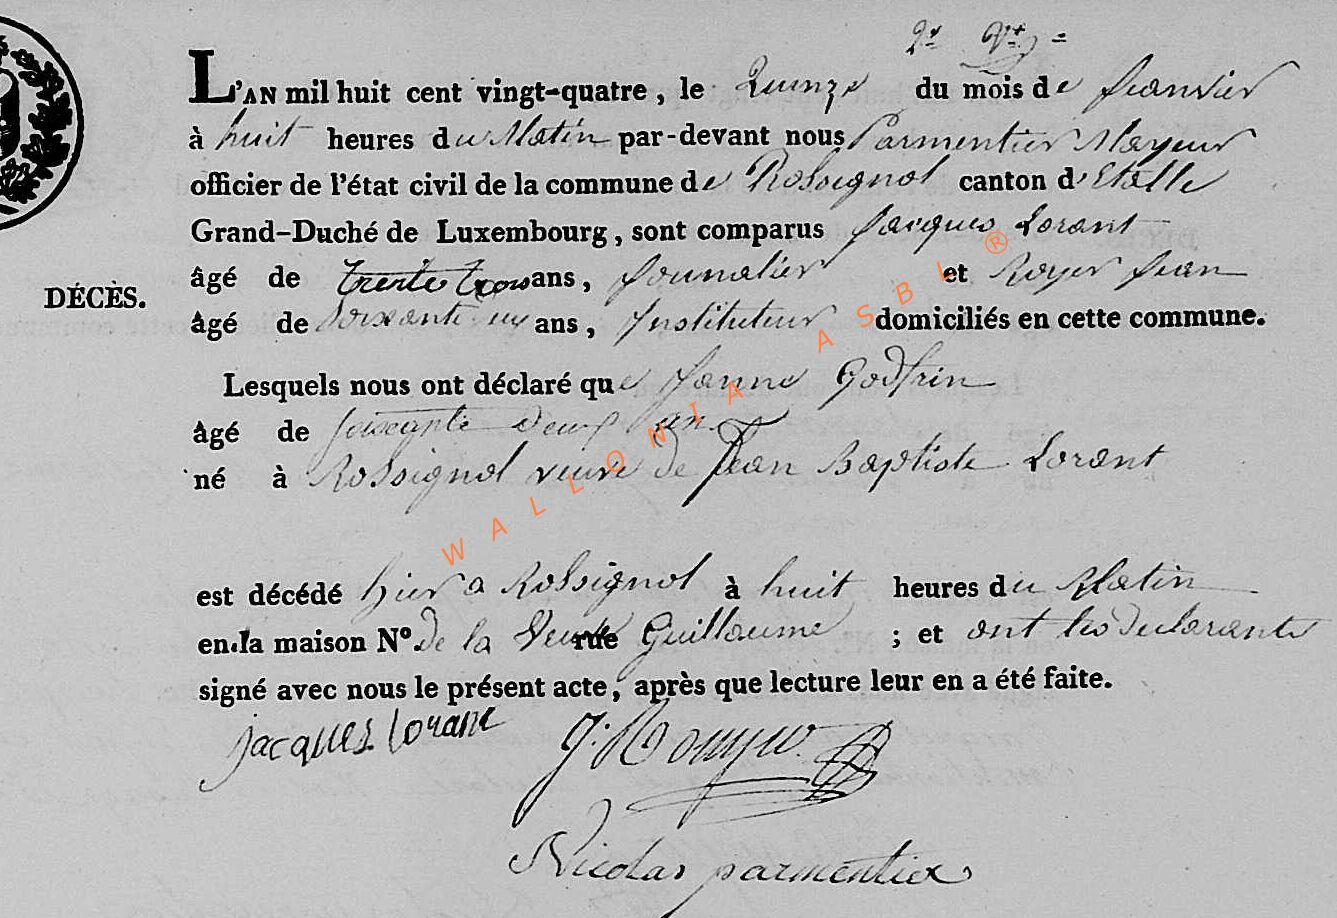 L'AN mil huit cent vingt-quatre, le Quinze du mois de Janvier
à huit heures du Matin par-devant nous Parmentier Mayeur
officier de l'état civil de la commune de Rossignol canton d'Etalle
Grand-Duché de Luxembourg, sont comparus Jacques Lorant
âgé de trente trois ans, Journalier et Royer Jean
DÉCÈS.
âgé de Soixante un ans, Instituteur domiciliés en cette commune.
Lesquels nous ont déclaré que Janne Godfrin
âgé de soixante deux an
né à Rossignol veuve de Jean Baptiste Lorant
est décédé hier a Rossignol à huit heures du Matin
en la maison N° de la Veuve rue Guillaume ; et ont les declarants
signé avec nous le présent acte, après que lecture leur en a été faite.
jacques lorant
Nicolas parmentier
WALLONIA ASBL ®